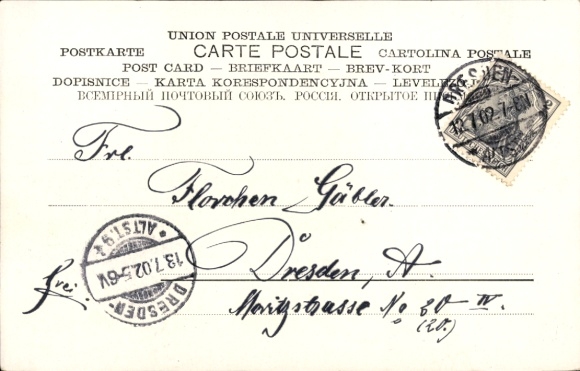 UNION POSTALE UNIVERSELLE
POSTKARTE CARTE POSTALE CARTOLINA POSTALE
POST CARD — BRIEFKAART — BREV-KORT
DOPISNICE — KARTA KORESPONDENCYJNA —
ВСЕМІРНЫЙ ПОЧТОВЫЙ СОЮЗЪ. РОССІЯ. ОТКРЫТОЕ
DRESDEN-
12.7.02. 7-8N
Frl.
Florchen Gäbler.
Dresden, A.
frei.
Moritzstrasse No 20 IV.
(20.)
DRESDEN-
13.7.02.5-6V
* ALTST.9